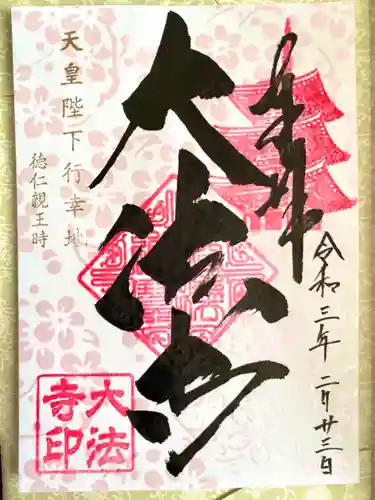 奉拝
令和三年二月廿三日
大法寺
天皇陛下行幸地
徳仁親王時
大法
寺印